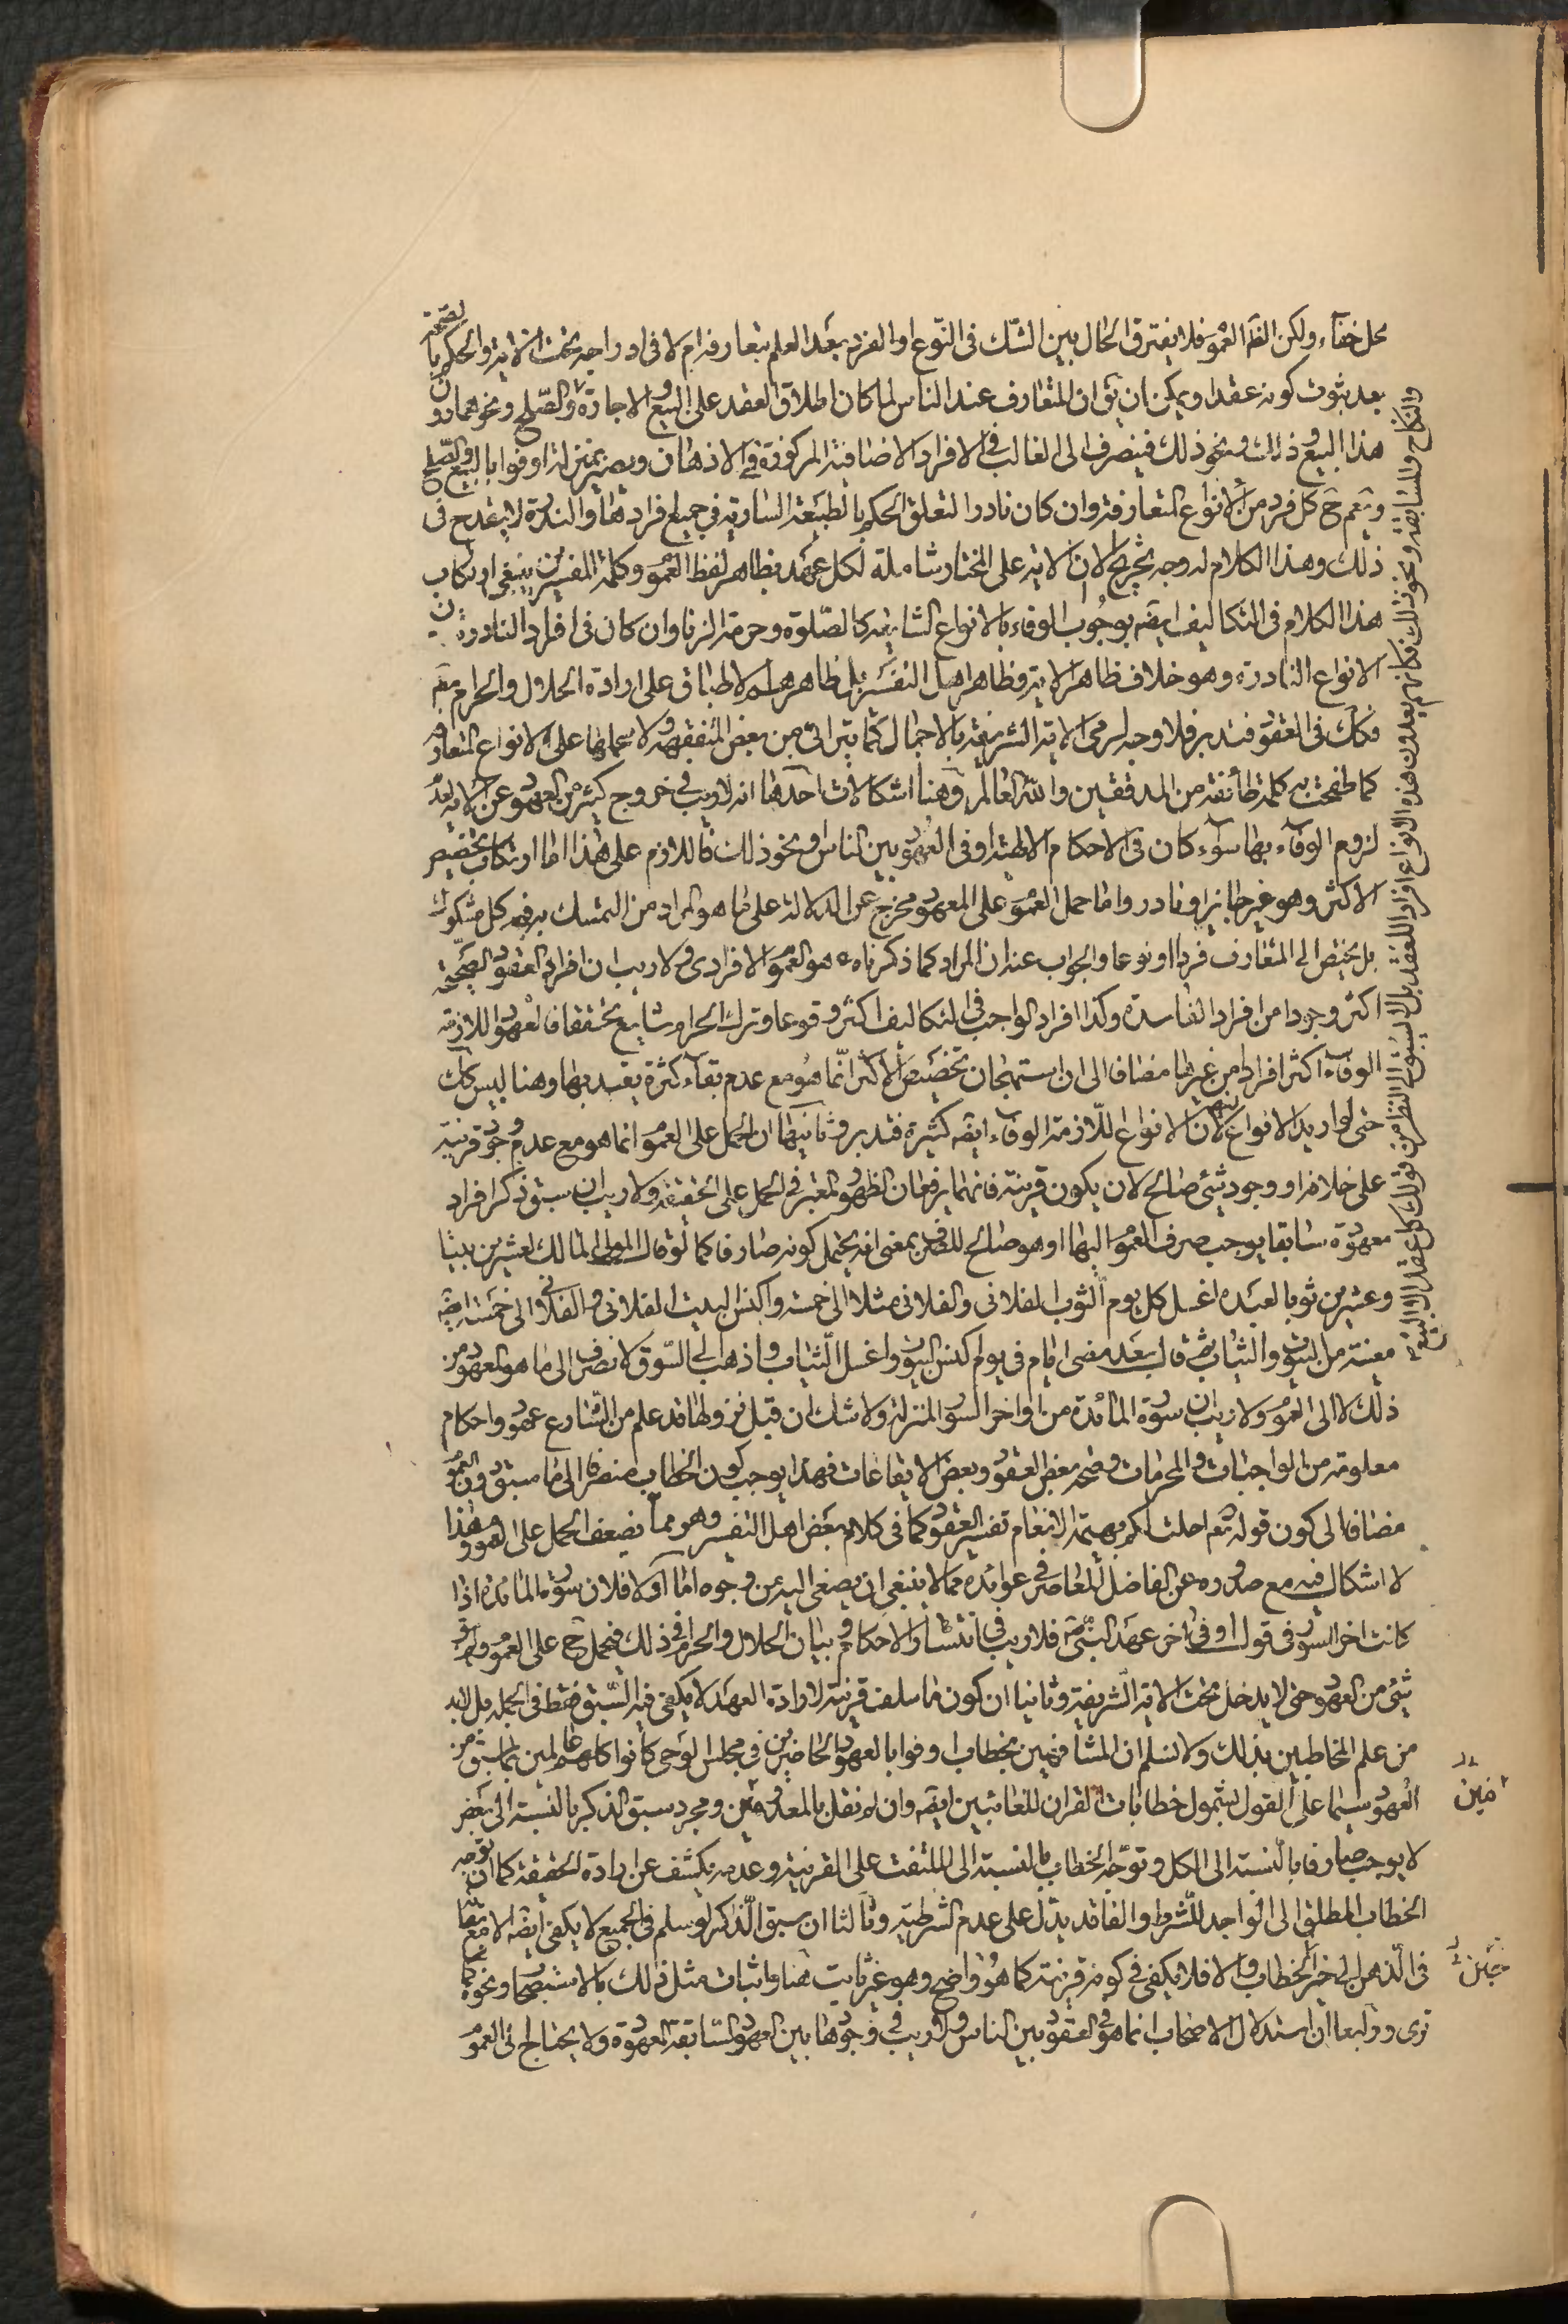 محل خفاء ولكن الظ العمو فلا يفترق الحال بين الشك فى النوع او الفرد بعد العلم بتعارفه ام لا فى اندراجه تحت الاية والحكم بالصحة
بعد ثبوت كونه عقدا ويمكن ان يق ان المتعارف عند الناس لما كان اطلاق العقد على البيع والاجارة والصلح ونحوهما دون
هذا البيع وذلك ونحو ذلك فينصرف الى الغالب فى الافراد الاضافية المركوزة فى الاذهان ويصير بمنزلة اوفوا بالبيع والصلح
ويعم ح كل فرد من الانواع المتعارفة وان كان نادرا لتعلق الحكم بالطبيعة السارية فى جميع افرادها والندرة لا يقدح فى
ذلك وهذا الكلام له وجه يخرج الا ان الاية على المختار شاملة لكل عهد بظاهر لفظ العمو وكلمة المفسرين ينبغى ارتكاب
هذا الكلام فى التكاليف ايضه بوجوب الوفاء بالانواع الشايعة كالصلوة وحرمة الزنا وان كان فى افراد النادرة دون
الانواع النادرة وهو خلاف ظاهر الاية وظاهر اهل التفسير بل ظاهرهم الاطباق على ارادة الحلال والحرام بقو
فكك فى العقود فتدبر فلا وجه لرمى الاية الشريفة بالاجمال كما يترائى من بعض المتفقهة ولا حملها على الانواع المتعارفه
كما طفحت به كلمة طائفة من المدققين والله العالم وهنا اشكالات احدها انه لا ريب فى خروج كثير من العهود عن الاية لعدم
لزوم الوفاء بها سواء كان فى الاحكام الالهية او فى العهود بين الناس ونحو ذلك فاللازم على هذا اما ارتكاب تخصيص
الاكثر وهو غير جايز او نادر واما حمل العمو على المعهود مخرج عن الدلالة على ما هو المراد من التمسك به فى كل مشكوك
بل يختص الى المتعارف فردا او نوعا والجواب عنه ان المراد كما ذكرناه هو العمو الافرادى ولا ريب ان افراد العقود الصحيحة
اكثر وجودا من افراد الفاسدة وكذا افراد الواجب فى التكاليف اكثر وقوعا وترك الحرام شايع تحققا فالعهود اللازمة
الوفاء اكثر افرادا من غيرها مضافا الى ان استهجان تخصيص الاكثر انما هو مع عدم بقاء كثرة يعتد بها وهنا ليس كك
حتى لو اريد الانواع لان الانواع اللازمة الوفاء ايضه كثيرة فتدبر وثانيها ان الحمل على العمو انما هو مع عدم وجود قرينة
على خلافه او وجود شئ صالح لان يكون قرينة فانهما يرفعان الظهور المعتبر فى الحمل على الحقيقة ولا ريب ان سبق ذكر افراد
معهودة سابقا يوجب صرف العمو اليها او هو صالح للصرف بمعنى انه يحتمل كونه صارفا كما لو قال المولى المالك لعشرين بيتا
وعشرين ثوبا لعبده اغسل كل يوم الثوب الفلانى والفلانى مثلا الى خمسة واكنس البيت الفلانى والفلانى الى خمسة ايضه
معينة من البيوت والثياب ثم قال بعد مضى ايام فى يوم اكنس البيوت واغسل الثياب واذهب الى السوق لانصرف الى ما هو المعهود من
ذلك لا الى العمو ولا ريب ان سورة المائدة من اواخر السور المنزلة ولا شك ان قبل نزولها قد علم من الشارع عهود واحكام
معلومة من الواجبات والمحرمات وصحة بعض العقود وبعض الايقاعات فهذا يوجب كون الخطاب منصرفا الى ما سبق دون العمو
مضافا الى كون قوله تعم احلت لكم بهيمة الانعام تفسير العقود كما فى كلام بعض اهل التفسير وهو مما يضعف الحمل على العمو وهذا
لا اشكال فيه مع صدوره عن الفاضل المعاصر فى عوائده مما لا ينبغى ان يصغى اليه من وجوه اما اولا فلان سورة المائدة اذا
كانت اخر السور فى قول او فى اخر عهد النبى ص فلا ريب فى انتشار الاحكام وبيان الحلال والحرام فى ذلك فيحمل ح على العمو ولم يبق
شئ من العهود حتى لا يدخل تحت الاية الشريفة وثانيا ان كون ما سلف قرينة لارادة العهد لا يكفى فيه السبق فقط فى الجملة بل لابد
من علم المخاطبين بذلك ولا نسلم ان المشافهين بخطاب اوفوا بالعهود الحاضرين فى مجلس الوحى كانوا كلهم عالمين بما سبق من
العهود سيما على القول بشمول خطابات القران للغائبين ايضه وان لم نقل بالمعدومين ومجرد سبق الذكر بالنسبة الى بعض
لا يوجب صارفا بالنسبة الى الكل وتوجه الخطاب بالنسبة الى الملتفت على القرينة وعدمه يكشف عن ارادة الحقيقة كما ان توجه
الخطاب المطلق الى الواجد للشرط والفاقد يدل على عدم الشرطية وثالثا ان سبق الذكر لو سلم فى الجميع لا يكفى ايضه الا مع بقائه
فى الذهن الى حين الخطاب والا فلا يكفى فى كونه قرينة كما هو واضح وهو غير ثابت هنا واثبات مثل ذلك بالاستصحاب ونحوه كما
ترى ورابعا ان استدلال الاصحاب انما هو فى العقود بين الناس ولا ريب فى وجودها بين العهود السابقة المعهودة ولا يحتاج الى العمو
والنكاح والمسابقه ونحو ذلك فكانهم يعدون هذه الانواع افراد اللعقد بل لا يسبق الى النظر من قولك كل عقد الا البيع